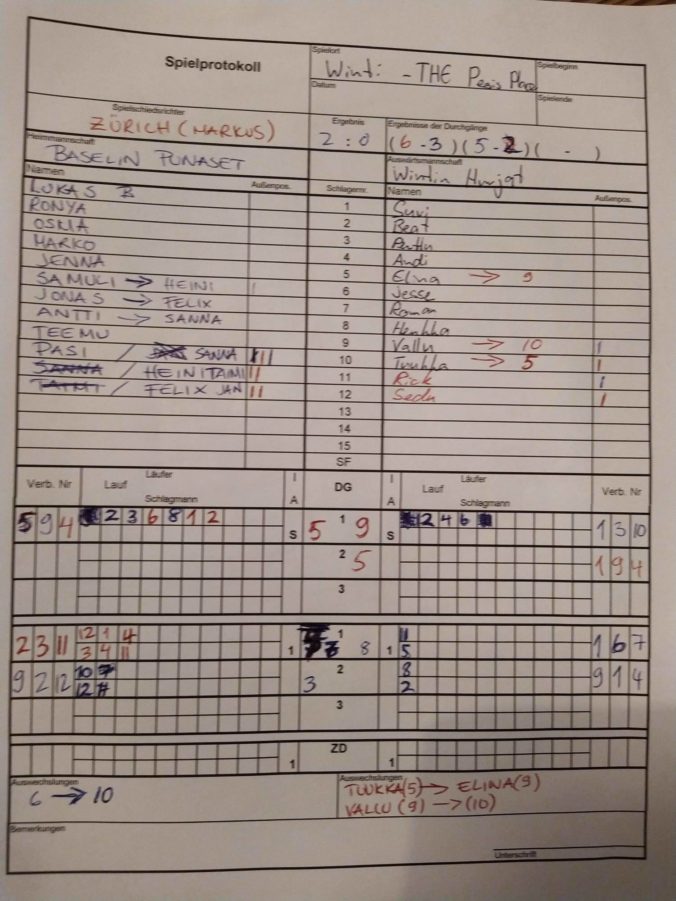 Spielprotokoll
Spielort
Winti - THE Place
Spielbeginn
Datum
Spielende
Spielschiedsrichter
ZÜRICH (MARKUS)
Ergebnis
2 : 0
Ergebnisse der Durchgänge
(6 - 3) (5 - 2) ( - )
Heimmannschaft
BASELIN PUNASET
Auswärtsmannschaft
Wintin
Namen Außenpos. Schlagernr. Namen Außenpos.
LUKAS B 1 Suvi
RONYA 2 Beat
OSKIA 3
MARKO 4 Andi
JENNA 5 Elina → 9
SAMULI → HEINI 6 Jesse
JONAS → FELIX 7 Roman
ANTTI → SANNA 8 Henkka
TEEMU 9 Vallu → 10 I
PASI / SANNA III 10 Tuukka → 5 I
SANNA / HEINI TAIMI II 11 Rick I
TAIMI / FELIX JAN II 12 Sedu I
13
14
15
SF
Verb. Nr Lauf Läufer Schlagmann I A DG I A Lauf Läufer Schlagmann Verb. Nr
5 9 4 2 3 6 8 1 2 S 5 1 9 S 2 4 6 1 3 10
2 5 1 9 4
3
2 3 11 12 1 4 1 1 8 1 11 1 6 7
3 4 11 5
9 2 12 10 7 3 2 8 9 1 4
12 11 2
3
1 ZD 1
Auswechslungen
6 → 10
Auswechslungen
TUUKKA(5) → ELINA(9)
VALLU (9) → (10)
Bemerkungen
Unterschrift